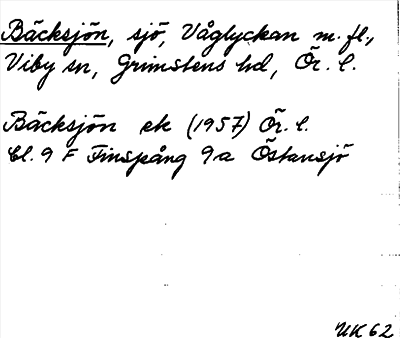 Bäcksjön, sjö, Våglyckan m. fl.,
Viby sn, Grimstens hd, Ör. l.
Bäcksjön ek (1957) Ör. l.
Bl. 9 F Finspång 9a Östansjö
UK 62